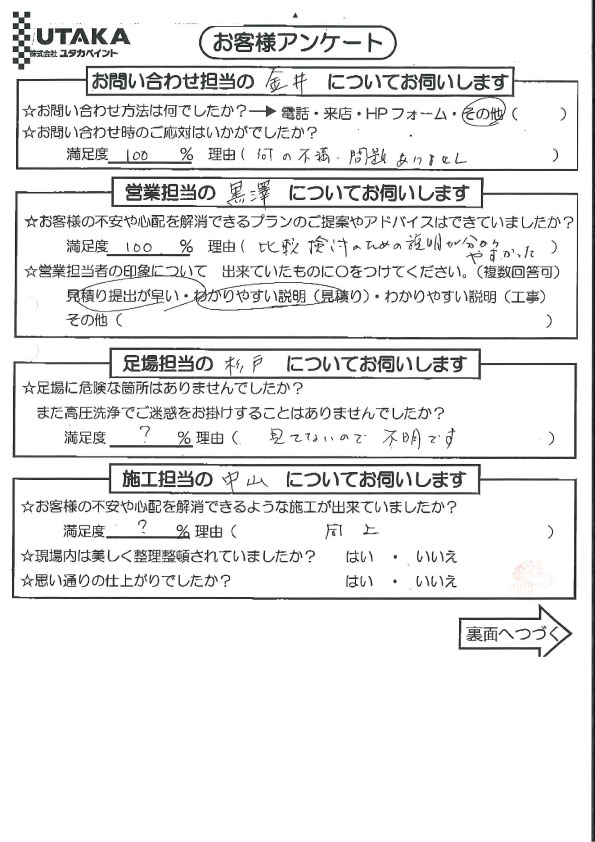 UTAKA
株式会社 ユタカペイント
お客様アンケート
お問い合わせ担当の 金井 についてお伺いします
☆お問い合わせ方法は何でしたか?→ 電話・来店・HPフォーム・その他( )
☆お問い合わせ時のご応対はいかがでしたか?
満足度 100 % 理由( 何の不満・問題ありません )
営業担当の 黒澤 についてお伺いします
☆お客様の不安や心配を解消できるプランのご提案やアドバイスはできていましたか?
満足度 100 % 理由( 比較検討のための説明が分かりやすかった )
☆営業担当者の印象について 出来ていたものに〇をつけてください。(複数回答可)
見積り提出が早い・わかりやすい説明(見積り)・わかりやすい説明(工事)
その他( )
足場担当の 杉戸 についてお伺いします
☆足場に危険な箇所はありませんでしたか?
また高圧洗浄でご迷惑をお掛けすることはありませんでしたか?
満足度 ? % 理由( 見てないので 不明です )
施工担当の 中山 についてお伺いします
☆お客様の不安や心配を解消できるような施工が出来ていましたか?
満足度 ? % 理由( 同上 )
☆現場内は美しく整理整頓されていましたか? はい ・ いいえ
☆思い通りの仕上がりでしたか? はい ・ いいえ
裏面へつづく